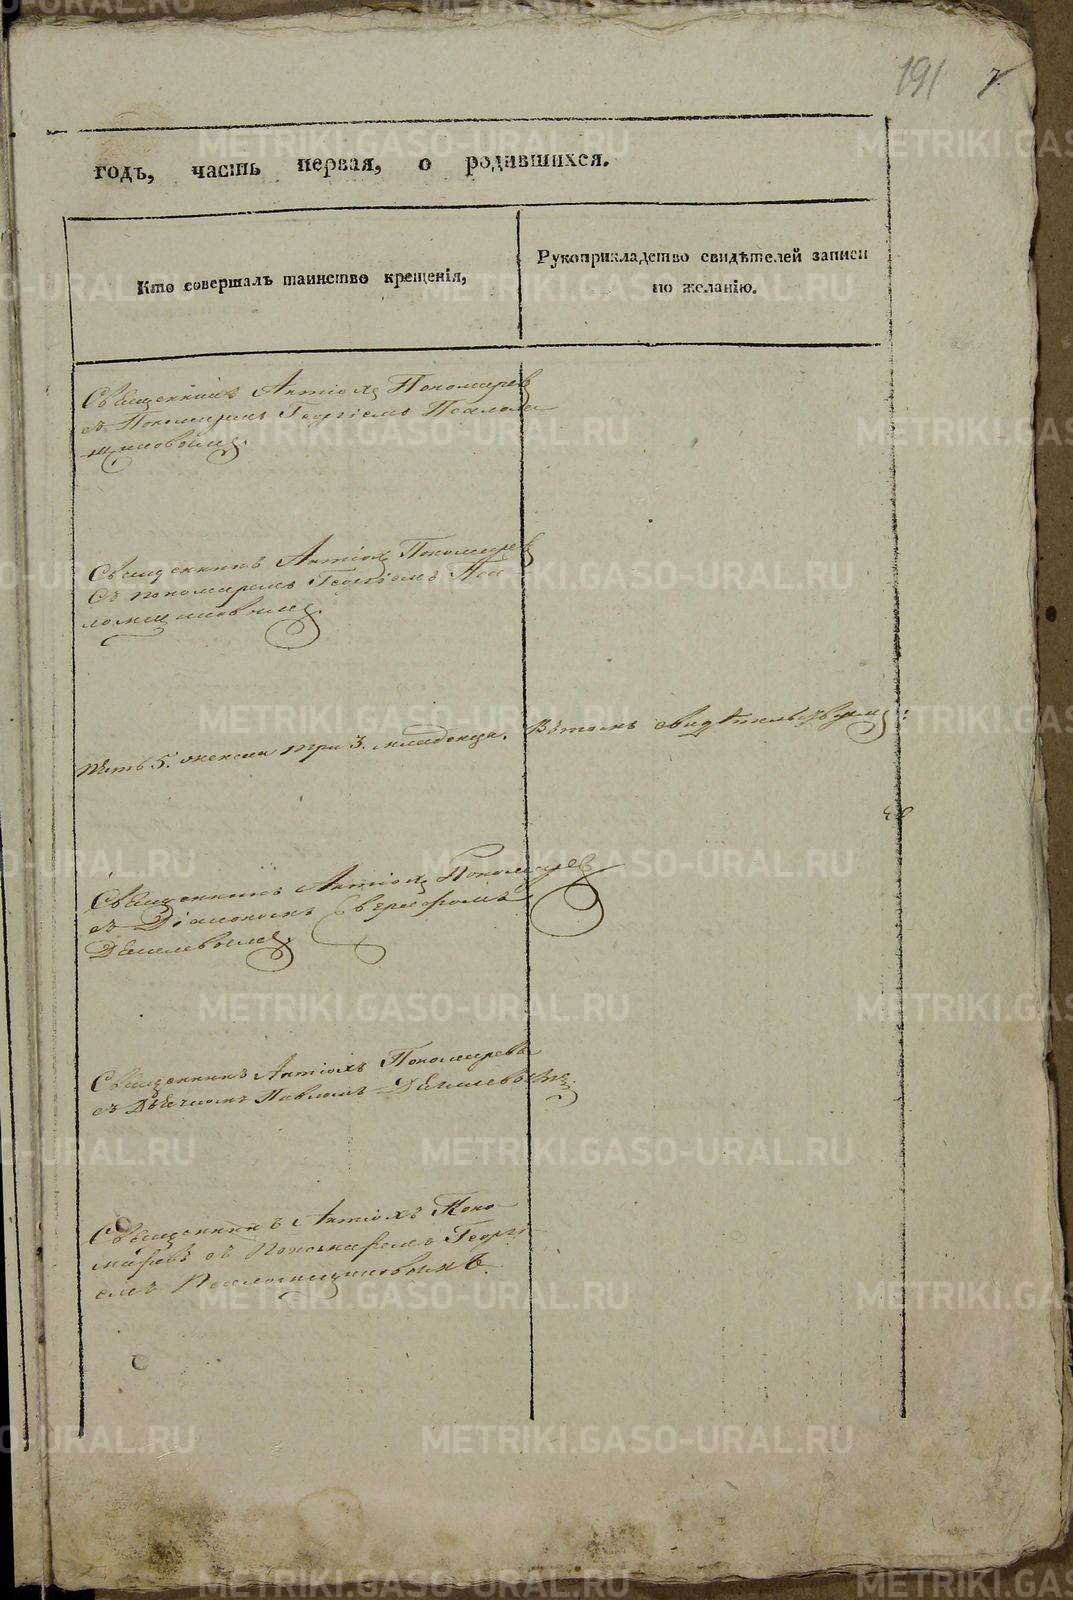 191 7.
годъ, часть первая, о родившихся.
Кто совершалъ таинство крещенія,
Рукоприкладство свидѣтелей записи
по желанію.
Священникъ Антіохъ Пономаревъ
съ Пономаремъ Георгіемъ Псаломщиковымъ.
Священникъ Антіохъ Пономаревъ
съ пономаремъ Георгіемъ Псаломщиковымъ.
пять 5. женска три 3. младенца. Въ томъ свидѣтельствуемъ:
Священникъ Антіохъ Пономаревъ
съ Діакономъ
Священникъ Антіохъ Пономаревъ
съ Дьячкомъ Павломъ
Священникъ Антіохъ Пономаревъ
съ Пономаремъ Георгіемъ
Псаломщиковымъ.
METRIKI.GASO-URAL.RU